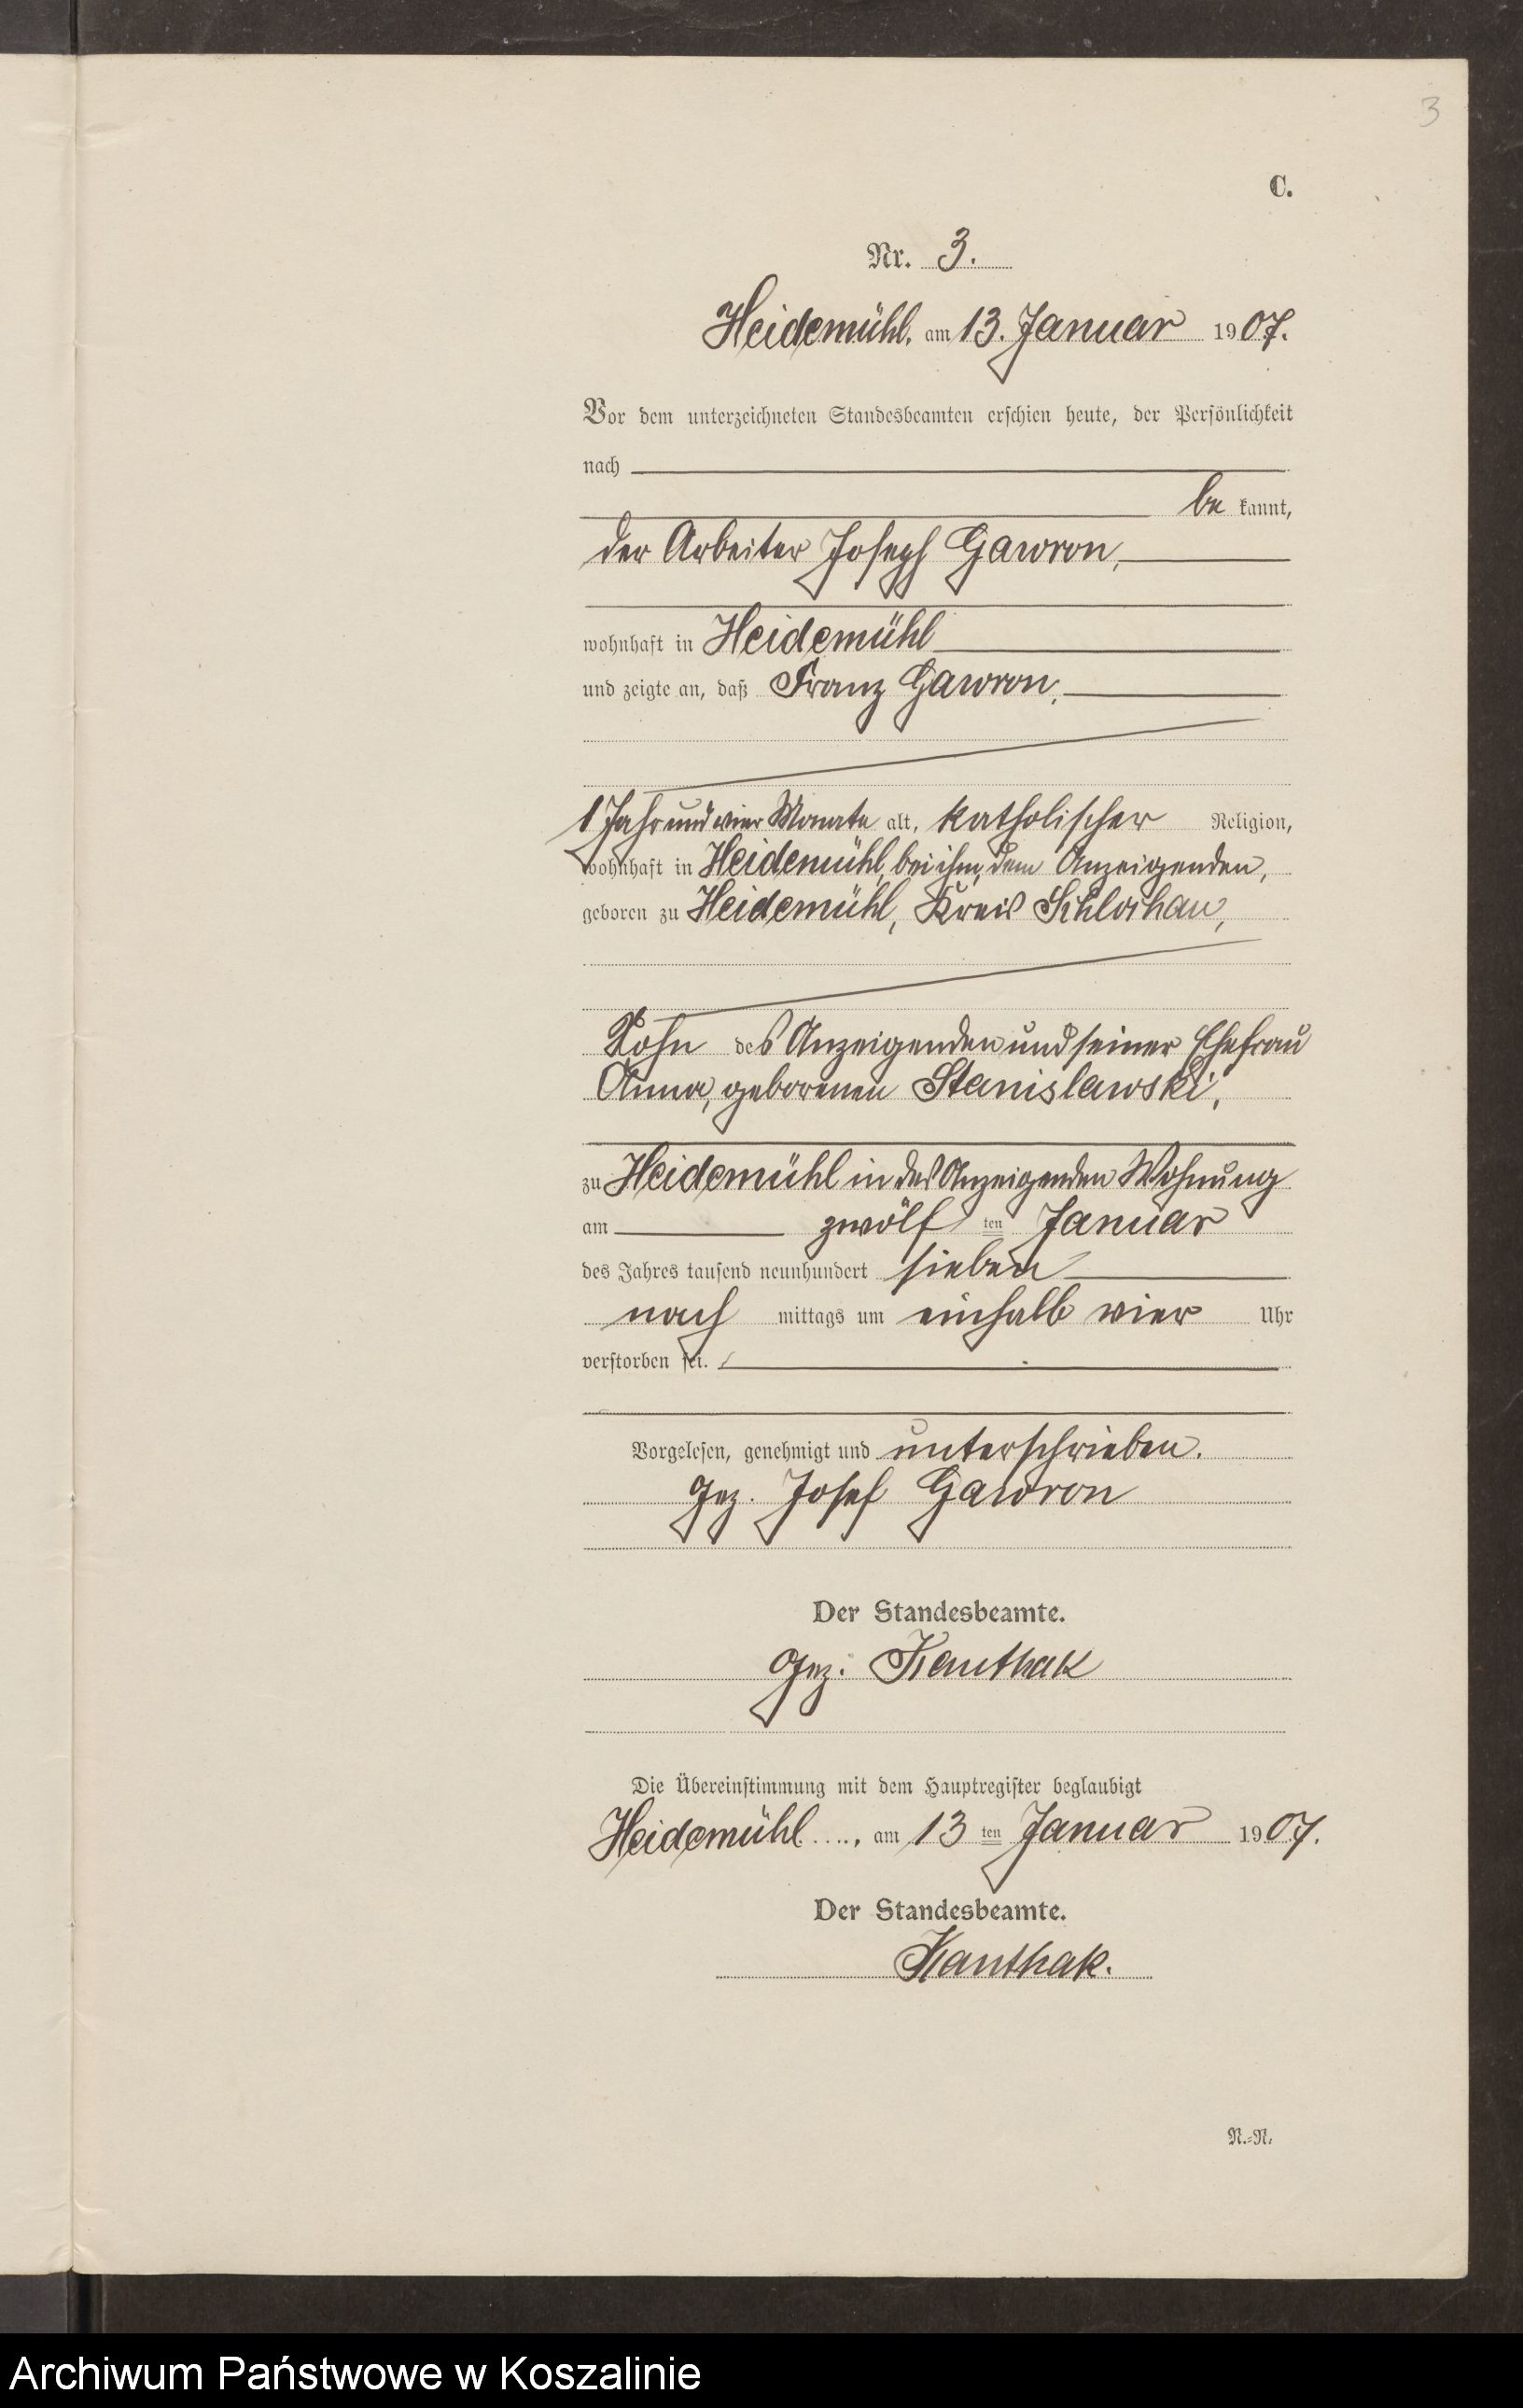 3
C.
Nr. 3.
Heidemühl, am 13. Januar 1907.
Vor dem unterzeichneten Standesbeamten erschien heute, der Persönlichkeit
nach
be kannt,
der Arbeiter Joseph Gawron,
wohnhaft in Heidemühl
und zeigte an, daß Franz Gawron,
1 Jahr und vier Monate alt, katholischer Religion,
wohnhaft in Heidemühl, bei ihm, dem Anzeigenden,
geboren zu Heidemühl, Kreis Schlochau,
Sohn des Anzeigenden und seiner Ehefrau
Anna, geborenen Stanislawski,
zu Heidemühl in des Anzeigenden Wohnung
am zwölf ten Januar
des Jahres tausend neunhundert sieben
nach mittags um einhalb vier Uhr
verstorben sei.
Vorgelesen, genehmigt und unterschrieben.
gez. Josef Gawron
Der Standesbeamte.
gez. Kanthak
Die Übereinstimmung mit dem Hauptregister beglaubigt
Heidemühl, am 13 ten Januar 1907.
Der Standesbeamte.
Kanthak.
N.=N.
Archiwum Państwowe w Koszalinie